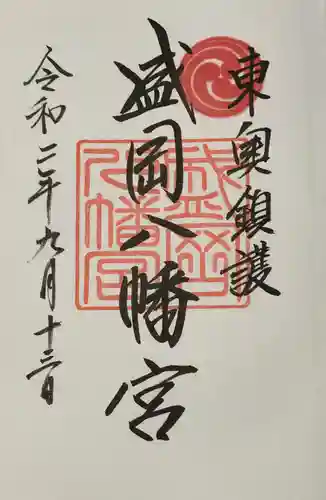 東奥鎮護
盛岡八幡宮
令和二年九月十三日
盛岡
八幡宮